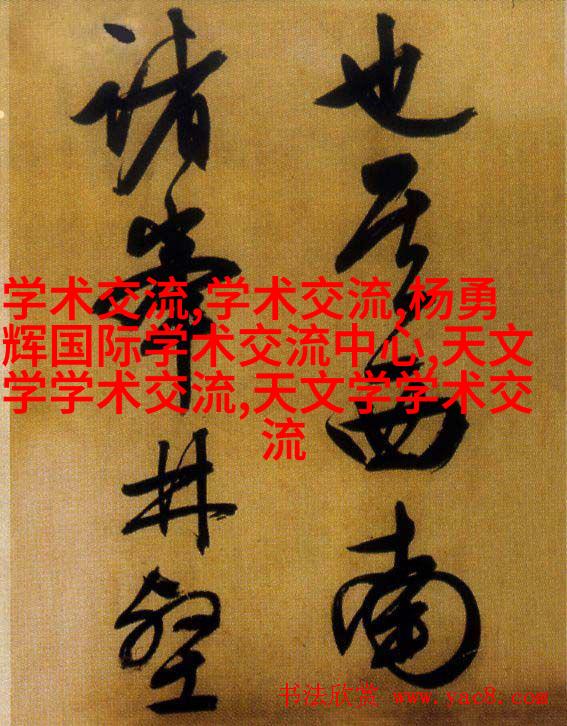 也其西南
諸峯林壑
学术交流,学术交流,杨勇
辉国际学术交流中心,天文
学学术交流,天文学学术交
流
书法欣赏 www.yac8.com